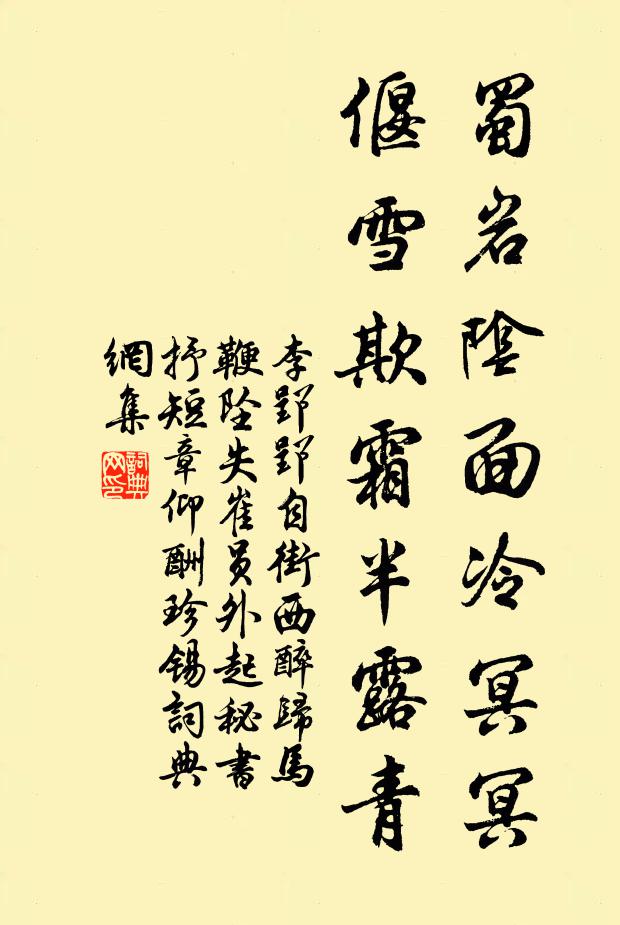 蜀岩陰面冷冥冥
偃雪欺霜半露青
李郢郢自街西醉歸馬
鞭墜失崔員外起秘書
抒短章仰酬珍錫詞典
網集
詞典
网印